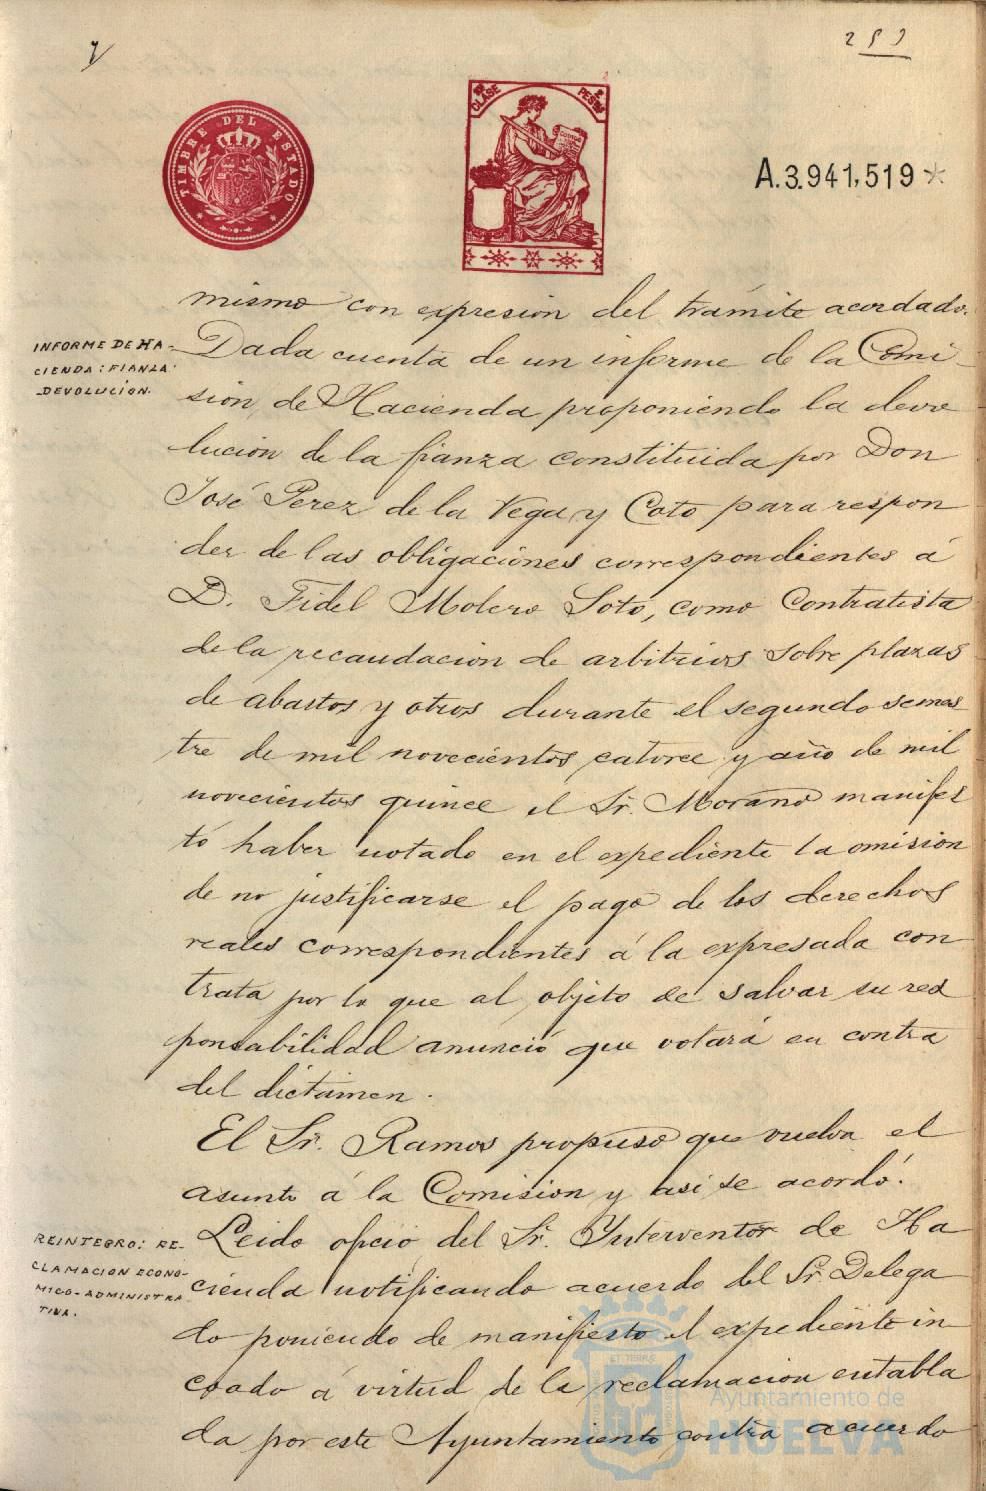 y
253
TIMBRE DEL ESTADO
CLASE
PESETAS
A.3.941,519
mismo con expresion del trámite acordado.
INFORME DE HA-
CIENDA: FIANZA:
DEVOLUCION.
Dada cuenta de un informe de la Comi-
sion de Hacienda proponiendo la devo
lución de la fianza constituida por Don
José Perez de la Vega y Coto para respon
der de las obligaciones correspondientes á
D. Fidel Molero Soto, como Contratista
de la recaudacion de arbitrios sobre plazas
de abastos y otros durante el segundo semes
tre de mil novecientos catorce y año de mil
novecientos quince el Sr. Morano manifes
tó haber notado en el expediente la omision
de no justificarse el pago de los derechos
reales correspondientes á la expresada con
trata por lo que al objeto de salvar su res
ponsabilidad anunció que votará en contra
del dictamen.
El Sr. Ramos propuso que vuelva el
asunto á la Comision y asi se acordó.
REINTEGRO: RE-
CLAMACION ECONO-
MICO-ADMINISTRA
TIVA.
Leido oficio del Sr. Interventor de Ha
cienda notificando acuerdo del Sr. Delega
do poniendo de manifiesto el expediente in
coado á virtud de la reclamacion entabla
da por este Ayuntamiento contra acuerdo
Ayuntamiento de
HUELVA